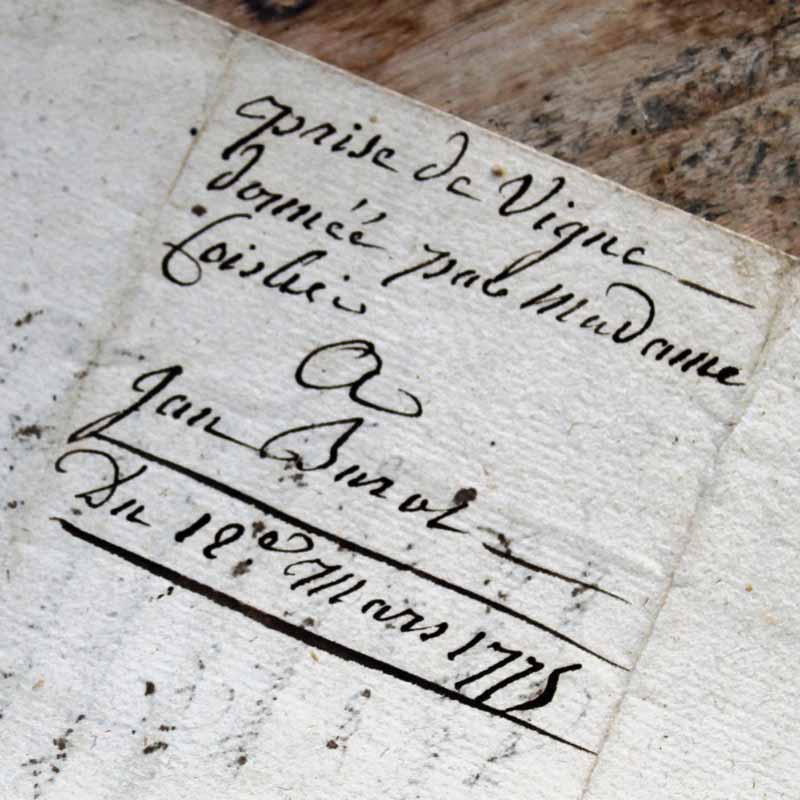 prise de Vigne
donnée par Madame
Coislié
A
Jan Burot
Du 12e Mars 1775